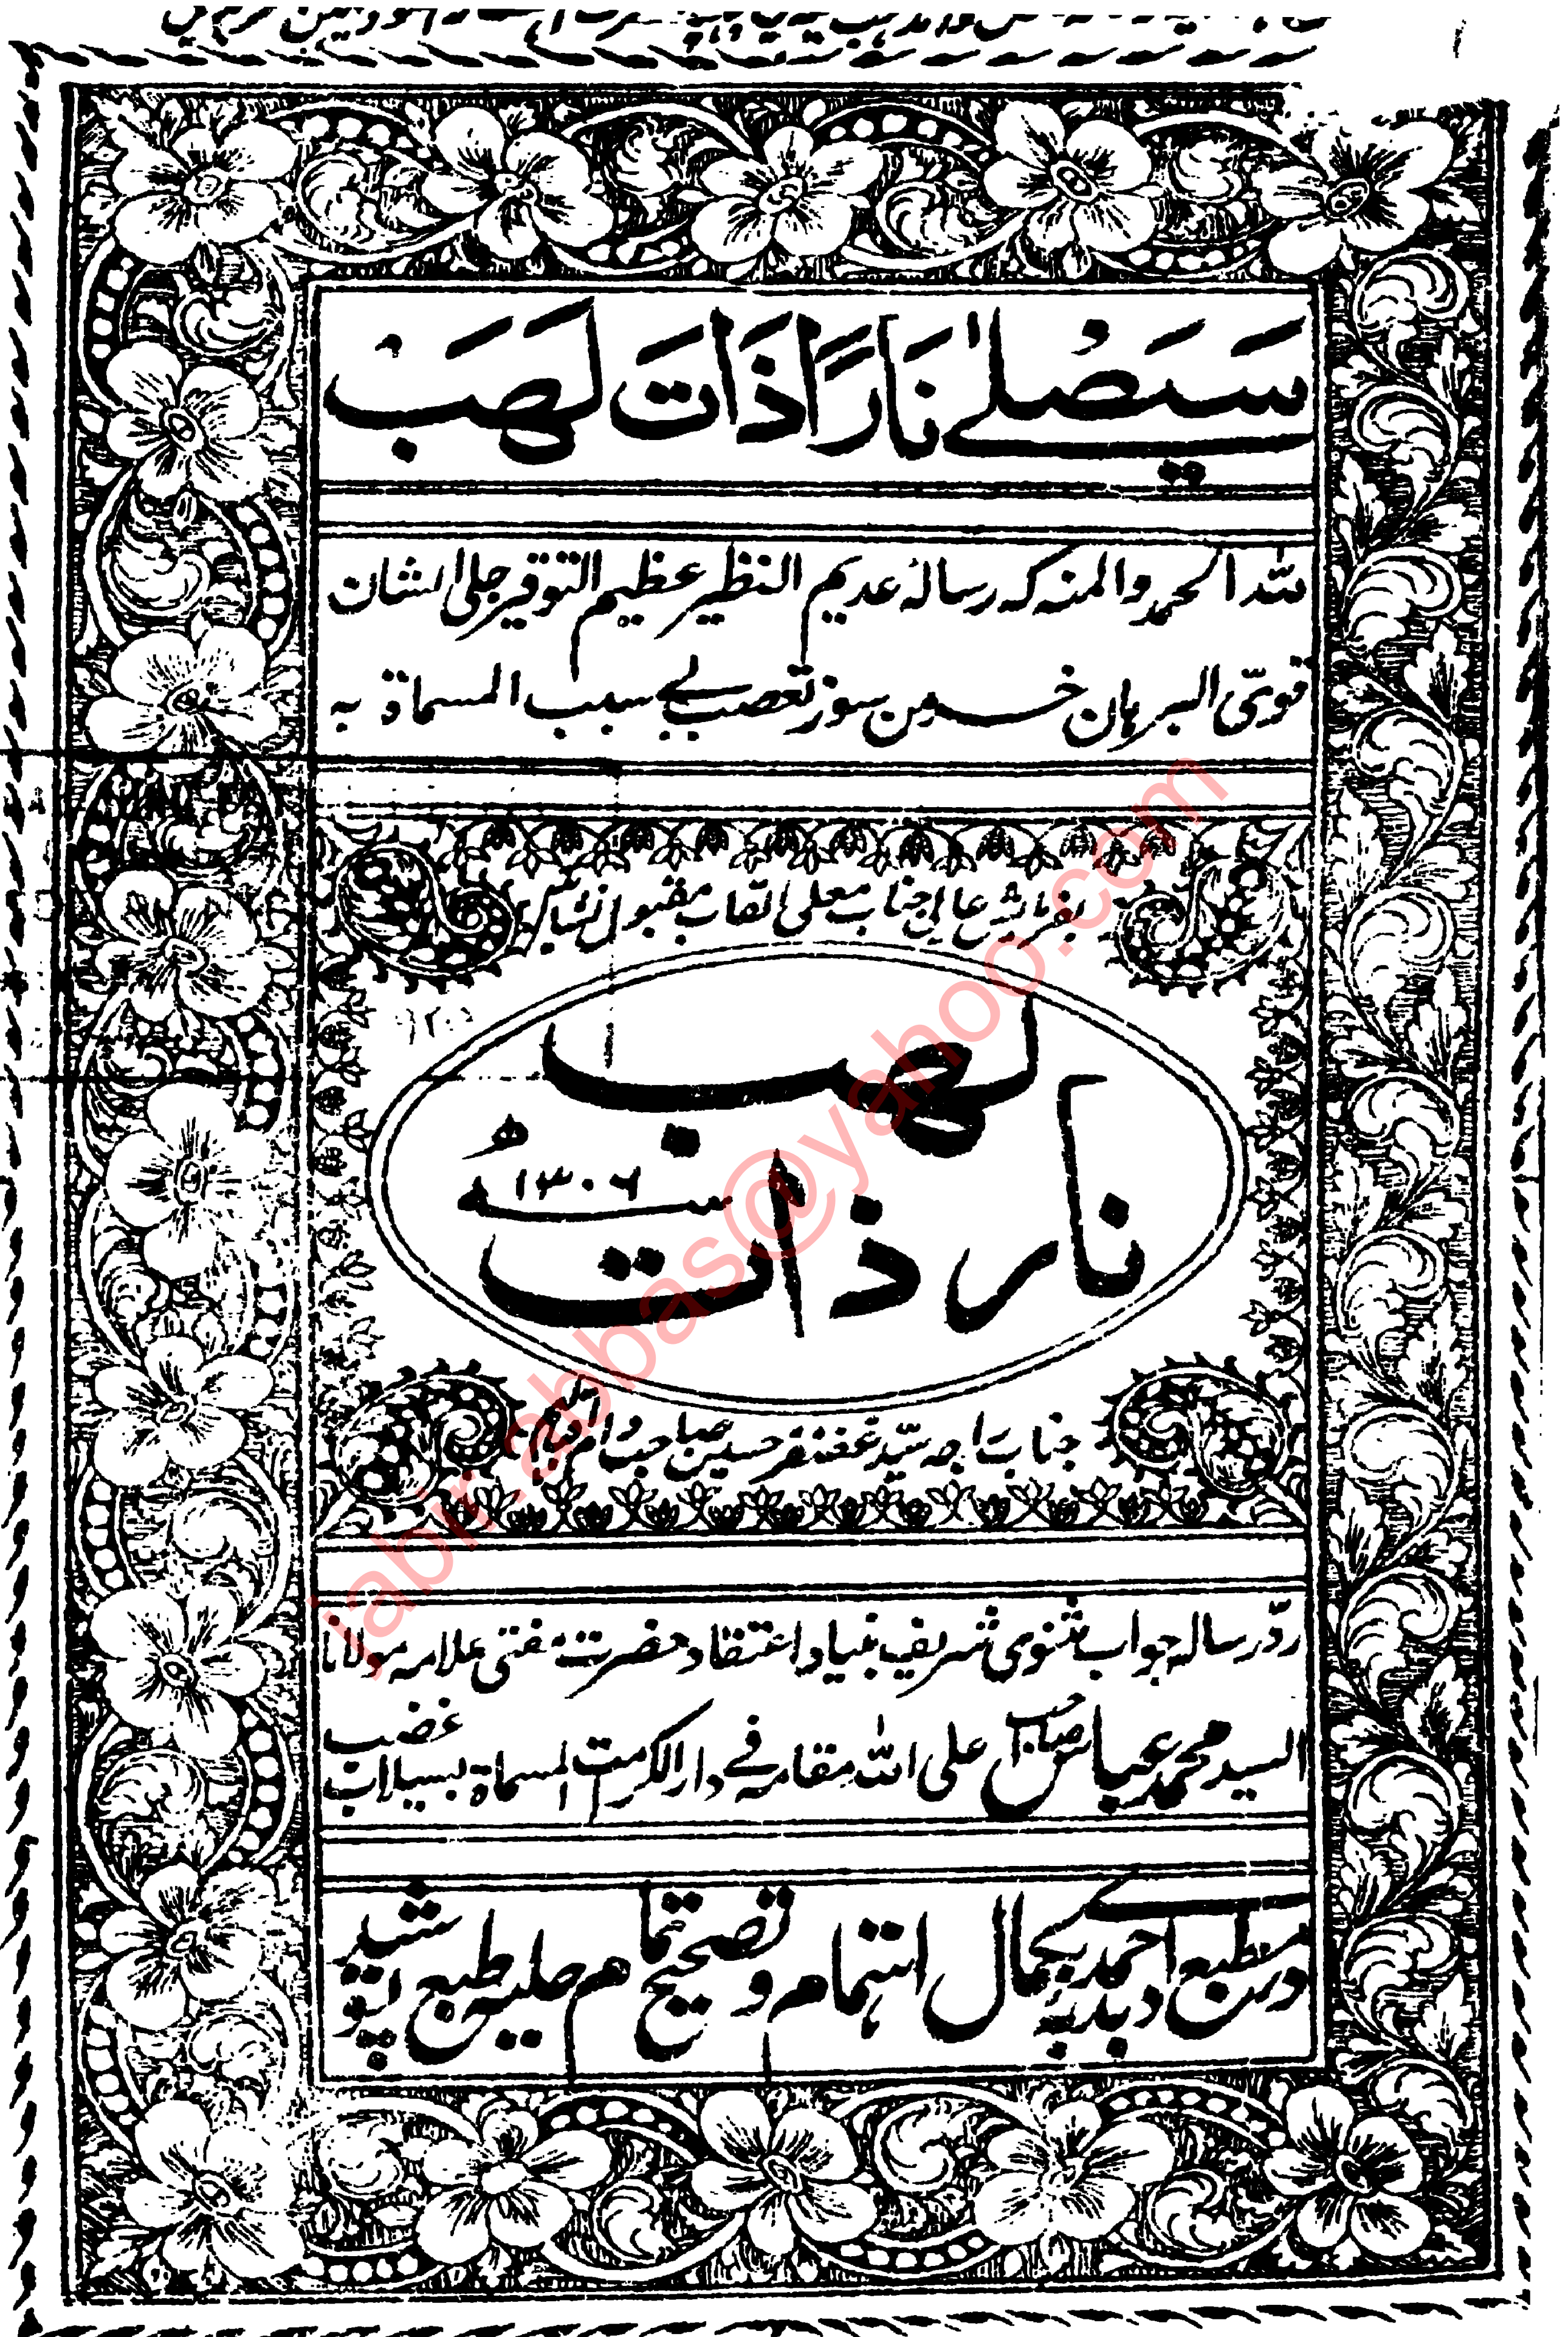 سَيَصْلٰے نَارًا ذَاتَ لَهَبْ
للہ الحمد والمنہ کہ رسالۂ عدیم النظیر عظیم التوقیر جلی الشان
قوی البرہان خرمن سوز تعصب بے سبب المسماۃ بہ
جناب معلی القاب مقبول
لہب
۱۳۰۶ سنہ ھ
نار ذات
جناب راجہ سید غضنفر حسین صاحب
ردّ رسالہ جواب مثنوی شریف بنیاد اعتقاد حضرت مفتی علامہ مولانا
السید محمد عباس صاحب علی اللہ مقامہ فے دار الکرامت المسماۃ بسیلاب غضب
در مطبع دبدبۂ احمدی بکمال اہتمام و تصحیح تمام حلیہ طبع پوشید
jabir.abbas@yahoo.com